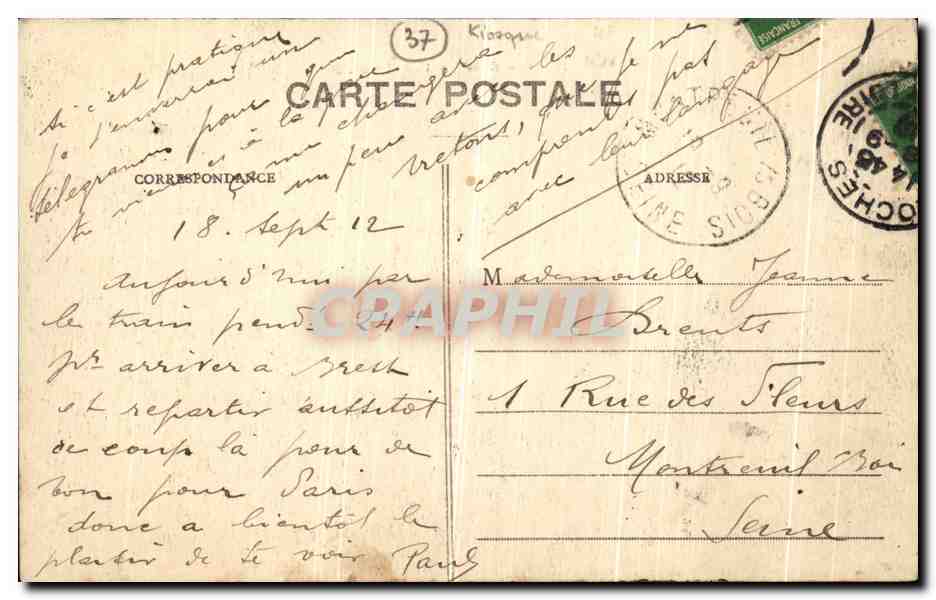 37
Kiosque
FRANCAISE
CARTE POSTALE
CORRESPONDANCE
ADRESSE
si c'est pratique
je t'enverrai un
télégramme pour que
tu viennes à la gare
ça me changera
un peu avec les
Bretons, car je ne
comprends pas
avec leur langage
18. Sept 12
Aujourd'hui par
le train pends 24 H
pr arriver a Brest
et repartir aussitot
ce coup là pour de
bon pour Paris
donc a bientôt le
plaisir de te voir Paul
Mademoiselle Jeanne
Brents
1 Rue des Fleurs
Montreuil Bois
Seine
MONTREUIL S/ BOIS
SEINE
LOCHES
14 45
19 - 9
LOIRE
CPAPHIL